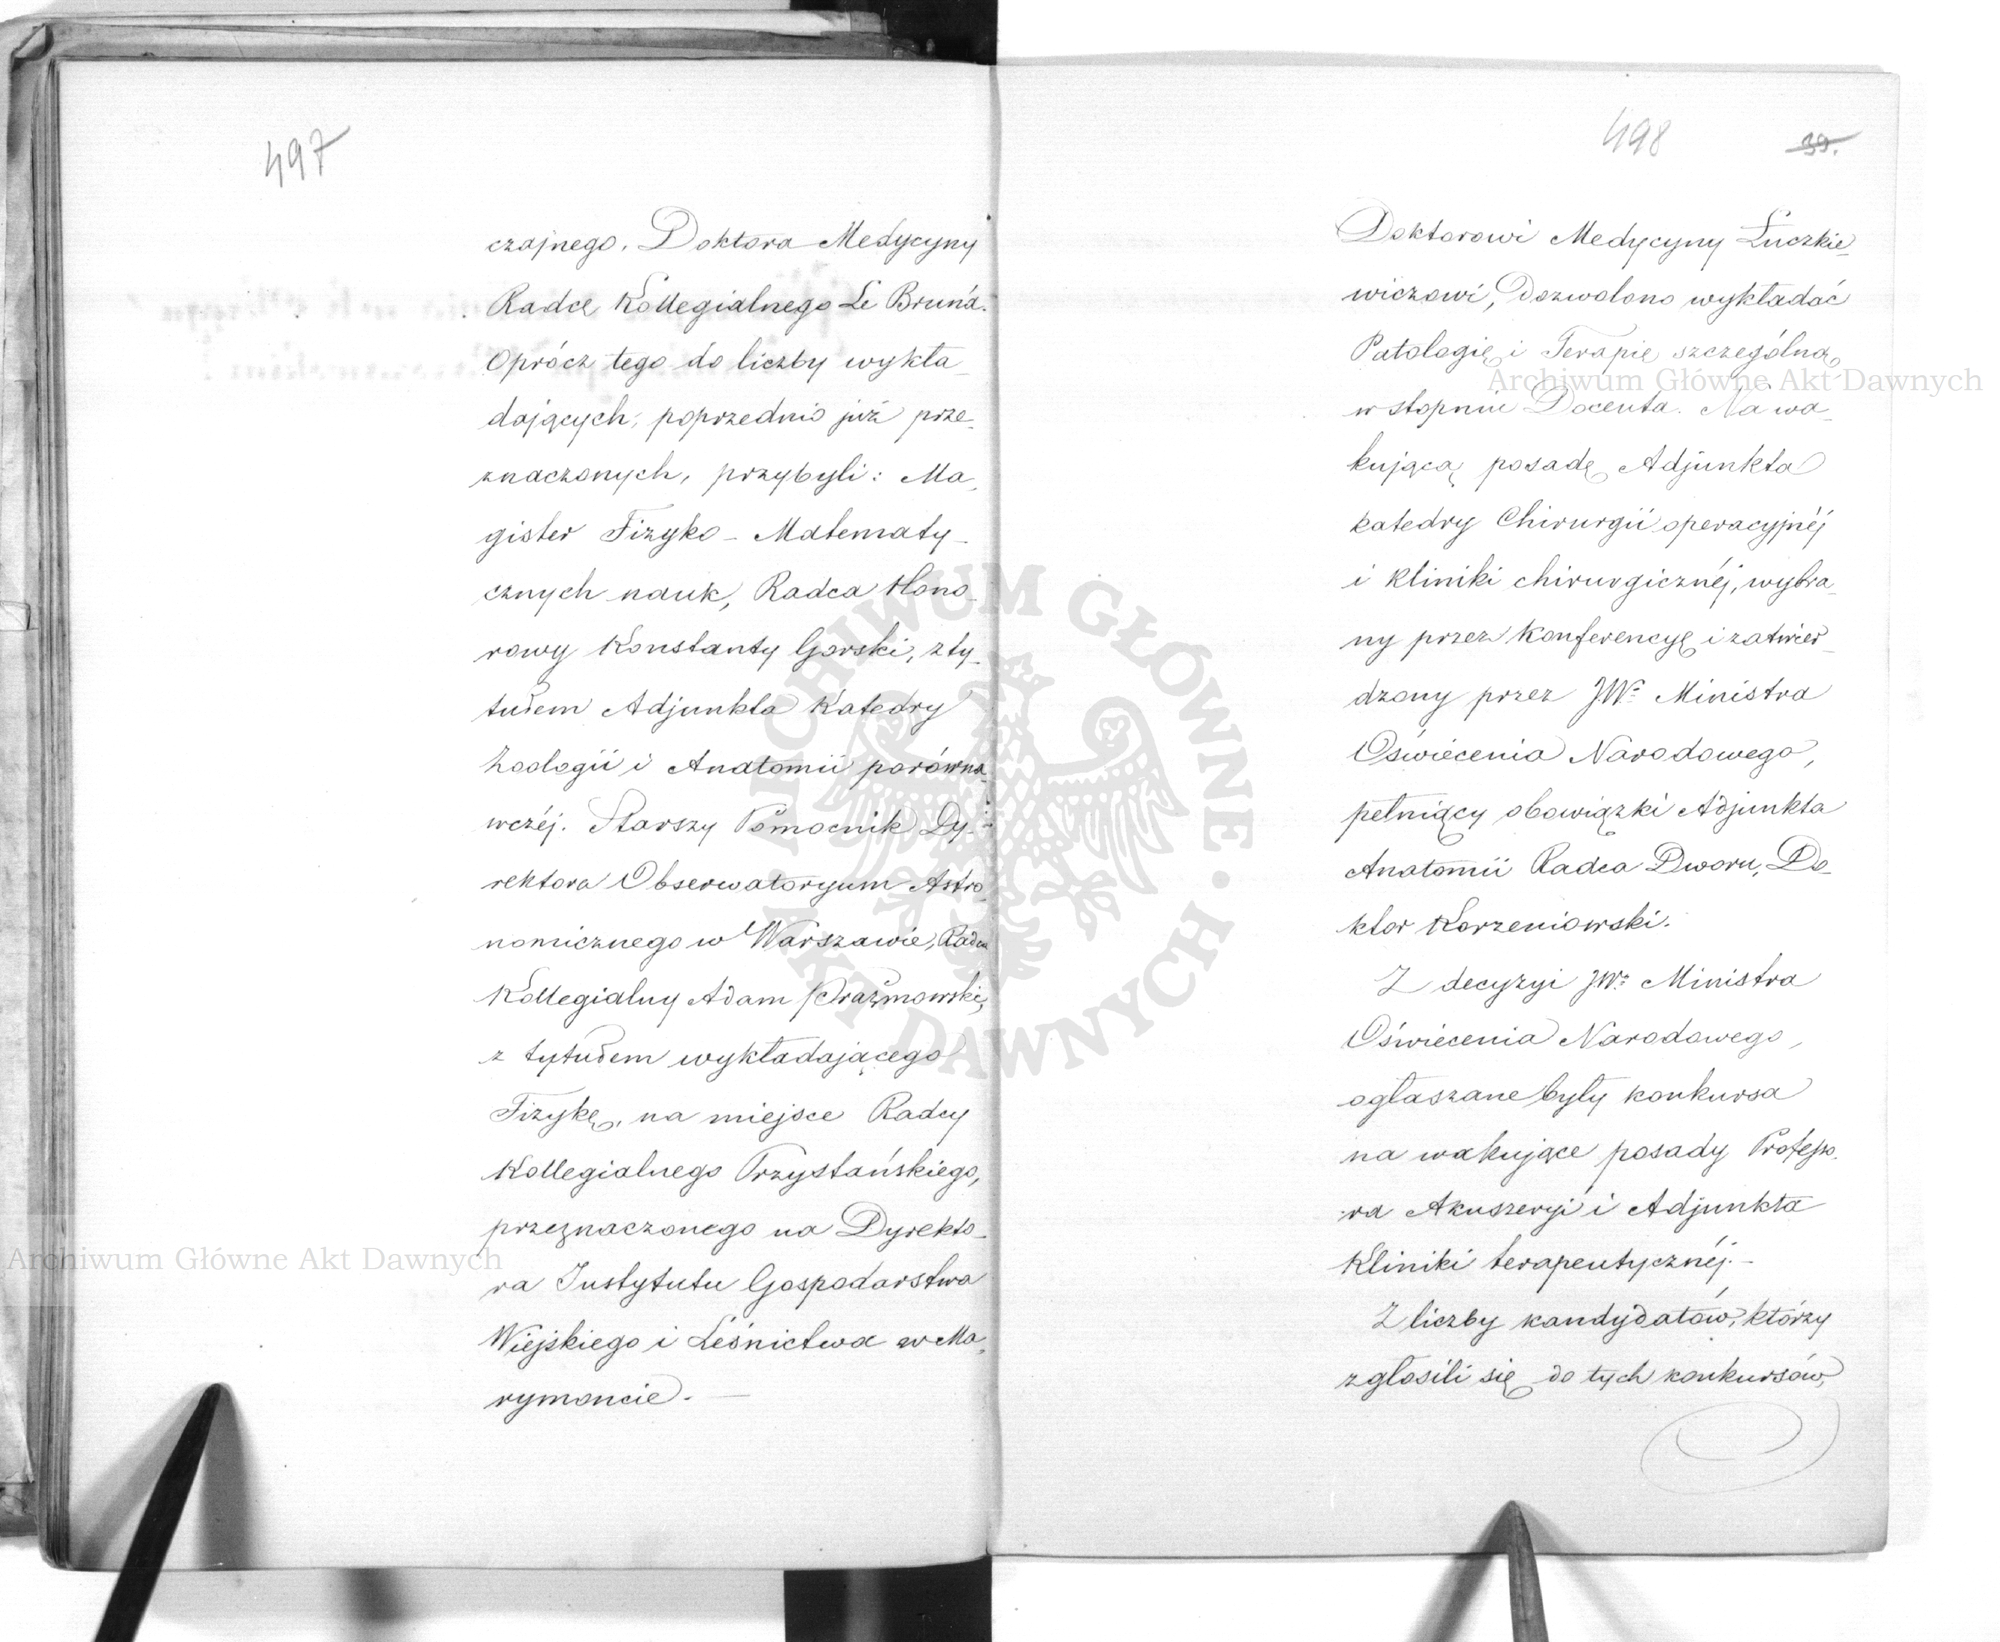 497
czajnego, Doktora Medycyny
Radcę Kollegialnego Le Brun'a.
Oprócz tego do liczby wykła-
dających, poprzednio już prze-
znaczonych, przybyli: Ma-
gister Fizyko-Matematy-
cznych nauk, Radca Hono-
rowy Konstanty Gorski, z ty-
tułem Adjunkta Katedry
Zoologii i Anatomii porówna-
wczéj. Starszy Pomocnik Dy-
rektora Obserwatoryum Astro-
nomicznego w Warszawie, Radca
Kollegialny Adam Prażmowski,
z tytułem wykładającego
Fizykę, na miejsce Radcy
Kollegialnego Przystańskiego,
przeznaczonego na Dyrekto-
ra Instytutu Gospodarstwa
Wiejskiego i Leśnictwa w Ma-
rymoncie. —
498 39.
Doktorowi Medycyny Łuczkie-
wiczowi, dozwolono wykładać
Patologię i Terapię szczególną,
w stopniu Docenta. Na wa-
kującą posadę Adjunkta
katedry Chirurgii operacyjnéj
i kliniki chirurgicznéj, wybra-
ny przez Konferencyę i zatwier-
dzony przez JW. Ministra
Oświecenia Narodowego,
pełniący obowiązki Adjunkta
Anatomii Radca Dworu, Do-
ktor Korzeniowski.
Z decyzyi JW. Ministra
Oświecenia Narodowego,
ogłaszane były konkursa
na wakujące posady Professo-
ra Akuszeryi i Adjunkta
Kliniki terapeutycznéj. —
Z liczby kandydatów, którzy
zgłosili się do tych konkursów,
Archiwum Główne Akt Dawnych
Archiwum Główne Akt Dawnych
ARCHIWUM GŁÓWNE AKT DAWNYCH